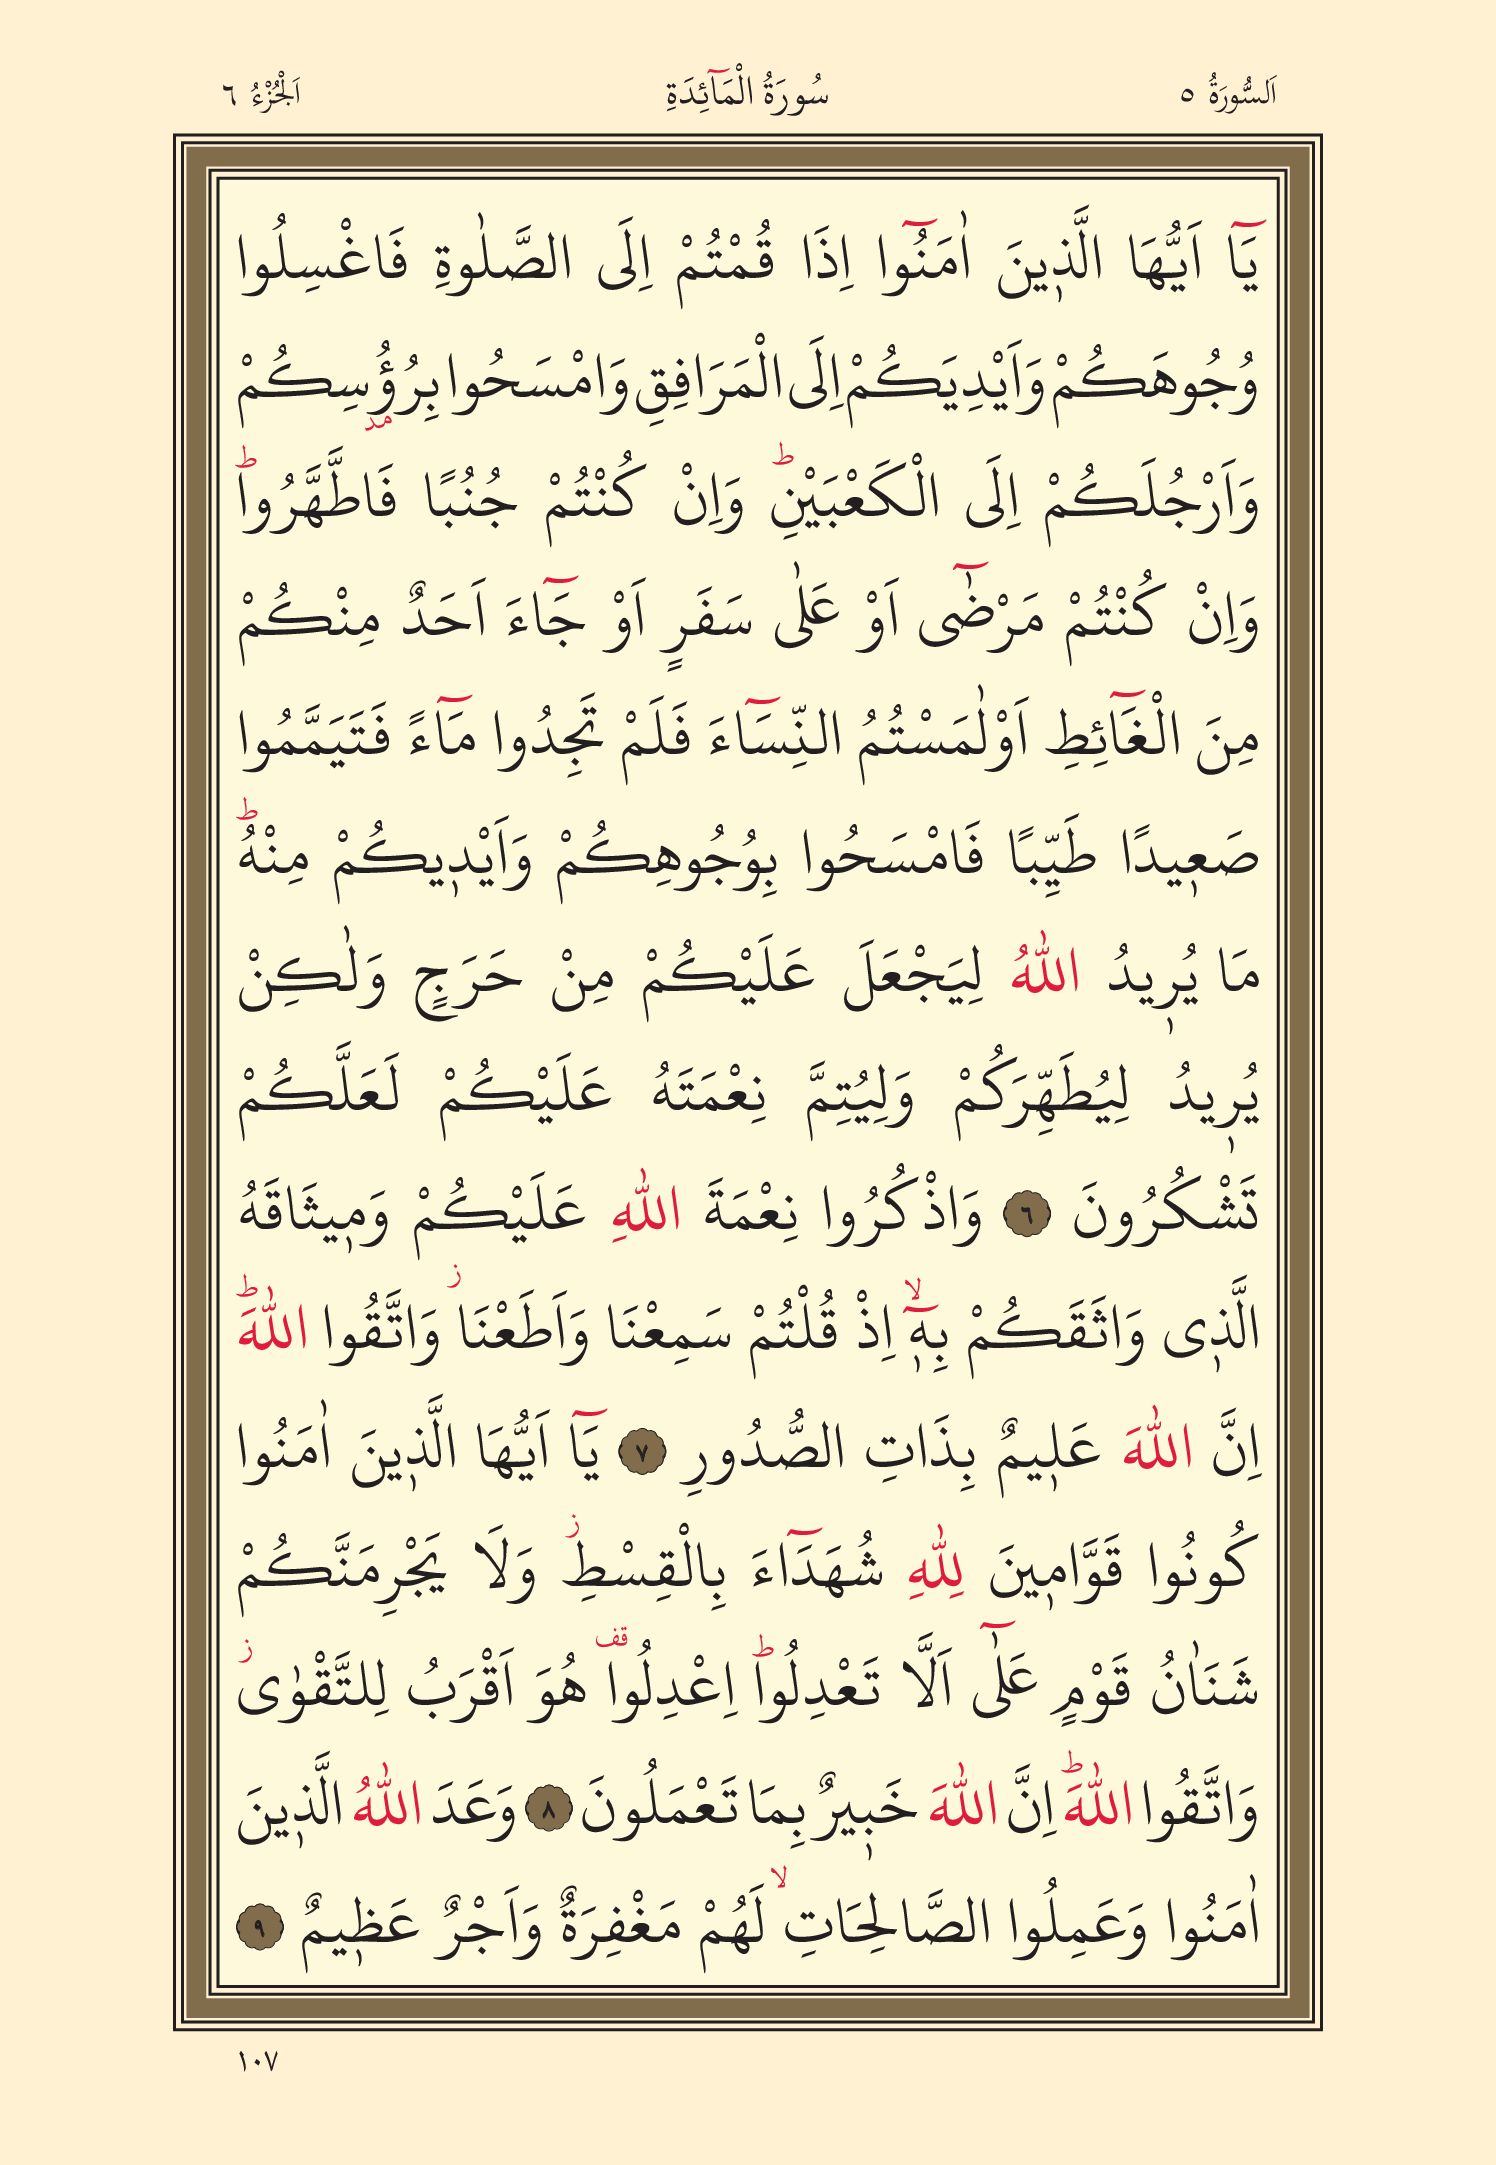 اَلسُّورَةُ ٥ سُورَةُ الْمَٓائِدَةِ اَلْجُزْءُ ٦
يَٓا اَيُّهَا الَّذ۪ينَ اٰمَنُٓوا اِذَا قُمْتُمْ اِلَى الصَّلٰوةِ فَاغْسِلُوا
وُجُوهَكُمْ وَاَيْدِيَكُمْ اِلَى الْمَرَافِقِ وَامْسَحُوا بِرُؤُ۫سِكُمْ مد
وَاَرْجُلَكُمْ اِلَى الْكَعْبَيْنِۜ وَاِنْ كُنْتُمْ جُنُبًا فَاطَّهَّرُواۜ
وَاِنْ كُنْتُمْ مَرْضٰٓى اَوْ عَلٰى سَفَرٍ اَوْ جَٓاءَ اَحَدٌ مِنْكُمْ
مِنَ الْغَٓائِطِ اَوْ لٰمَسْتُمُ النِّسَٓاءَ فَلَمْ تَجِدُوا مَٓاءً فَتَيَمَّمُوا
صَع۪يدًا طَيِّبًا فَامْسَحُوا بِوُجُوهِكُمْ وَاَيْد۪يكُمْ مِنْهُۜ
مَا يُر۪يدُ اللّٰهُ لِيَجْعَلَ عَلَيْكُمْ مِنْ حَرَجٍ وَلٰكِنْ
يُر۪يدُ لِيُطَهِّرَكُمْ وَلِيُتِمَّ نِعْمَتَهُ عَلَيْكُمْ لَعَلَّكُمْ
تَشْكُرُونَ ٦ وَاذْكُرُوا نِعْمَةَ اللّٰهِ عَلَيْكُمْ وَم۪يثَاقَهُ
الَّذ۪ى وَاثَقَكُمْ بِه۪ٓۙ اِذْ قُلْتُمْ سَمِعْنَا وَاَطَعْنَاۘ وَاتَّقُوا اللّٰهَۜ
اِنَّ اللّٰهَ عَل۪يمٌ بِذَاتِ الصُّدُورِ ٧ يَٓا اَيُّهَا الَّذ۪ينَ اٰمَنُوا
كُونُوا قَوَّام۪ينَ لِلّٰهِ شُهَدَٓاءَ بِالْقِسْطِۘ وَلَا يَجْرِمَنَّكُمْ
شَنَاٰنُ قَوْمٍ عَلٰٓى اَلَّا تَعْدِلُواۜ اِعْدِلُوا۠ هُوَ اَقْرَبُ لِلتَّقْوٰىۘ
وَاتَّقُوا اللّٰهَۜ اِنَّ اللّٰهَ خَب۪يرٌ بِمَا تَعْمَلُونَ ٨ وَعَدَ اللّٰهُ الَّذ۪ينَ
اٰمَنُوا وَعَمِلُوا الصَّالِحَاتِۙ لَهُمْ مَغْفِرَةٌ وَاَجْرٌ عَظ۪يمٌ ٩
١٠٧